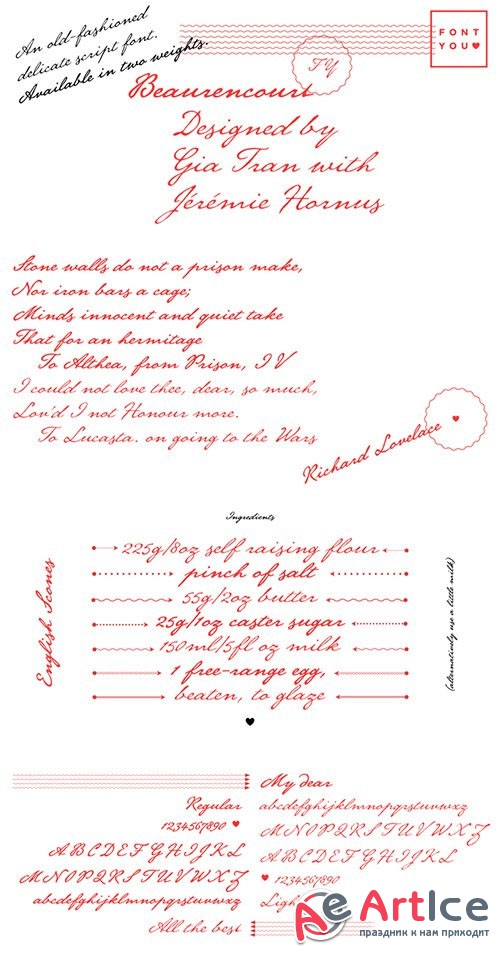 An old-fashioned
delicate script font.
Available in two weights.
FONT
YOU♥
TY
Beaurencourt
Designed by
Gia Tran with
Jérémie Hornus
Stone walls do not a prison make,
Nor iron bars a cage;
Minds innocent and quiet take
That for an hermitage
To Althea, from Prison, IV
I could not love thee, dear, so much,
Lov'd I not Honour more.
To Lucasta. on going to the Wars
Richard Lovelace
Ingredients
English Scones
225g/8oz self raising flour
pinch of salt
55g/2oz butter
25g/1oz caster sugar
150ml/5fl oz milk
1 free-range egg,
beaten, to glaze
(alternatively use a little milk)
Regular
1234567890 ♥
ABCDEFGHIJKL
MNOPQRSTUVWXZ
abcdefghijklmnopqrstuvwxz
All the best
My dear
abcdefghijklmnopqrstuvwxz
MNOPQRSTUVWXZ
ABCDEFGHIJKL
♥ 1234567890
Light
ArtIce
праздник к нам приходит